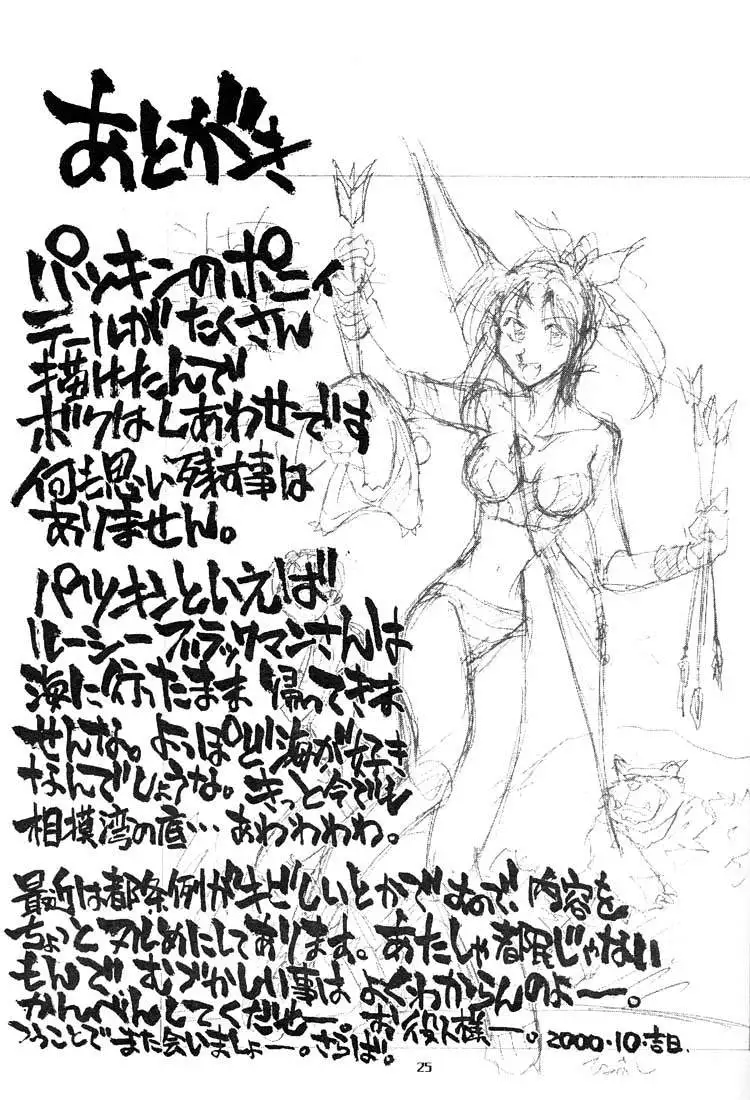 あとがき
パツキンのポニィ
テールがたくさん
描けたんで
ボクはしあわせです
何も思い残す事は
ありません。
パツキンといえば
ルーシーブラックマンさんは
海に行ったまま 帰ってきま
せんな。よっぽど海が好き
なんでしょうな。きっと今でも
相模湾の底…あわわわわ。
最近は都条例がキビしいとかですので、内容を
ちょっとヌルめにしてあります。あたしゃ都民じゃない
もんで むづかしい事は よくわからんのよー。
かんべんしてくだせー。お役人様ー。2000.10.吉日.
つうことでまた会いましょー。さらば。
25